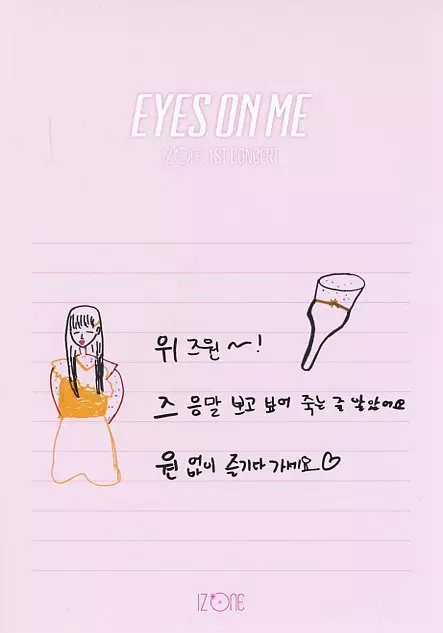 EYES ON ME
IZ*ONE 1ST CONCERT
위 즈원~!
즈 응말 보고 보여 죽는 줄 알았어요
원 없이 즐기다 가세요♡
IZ*ONE